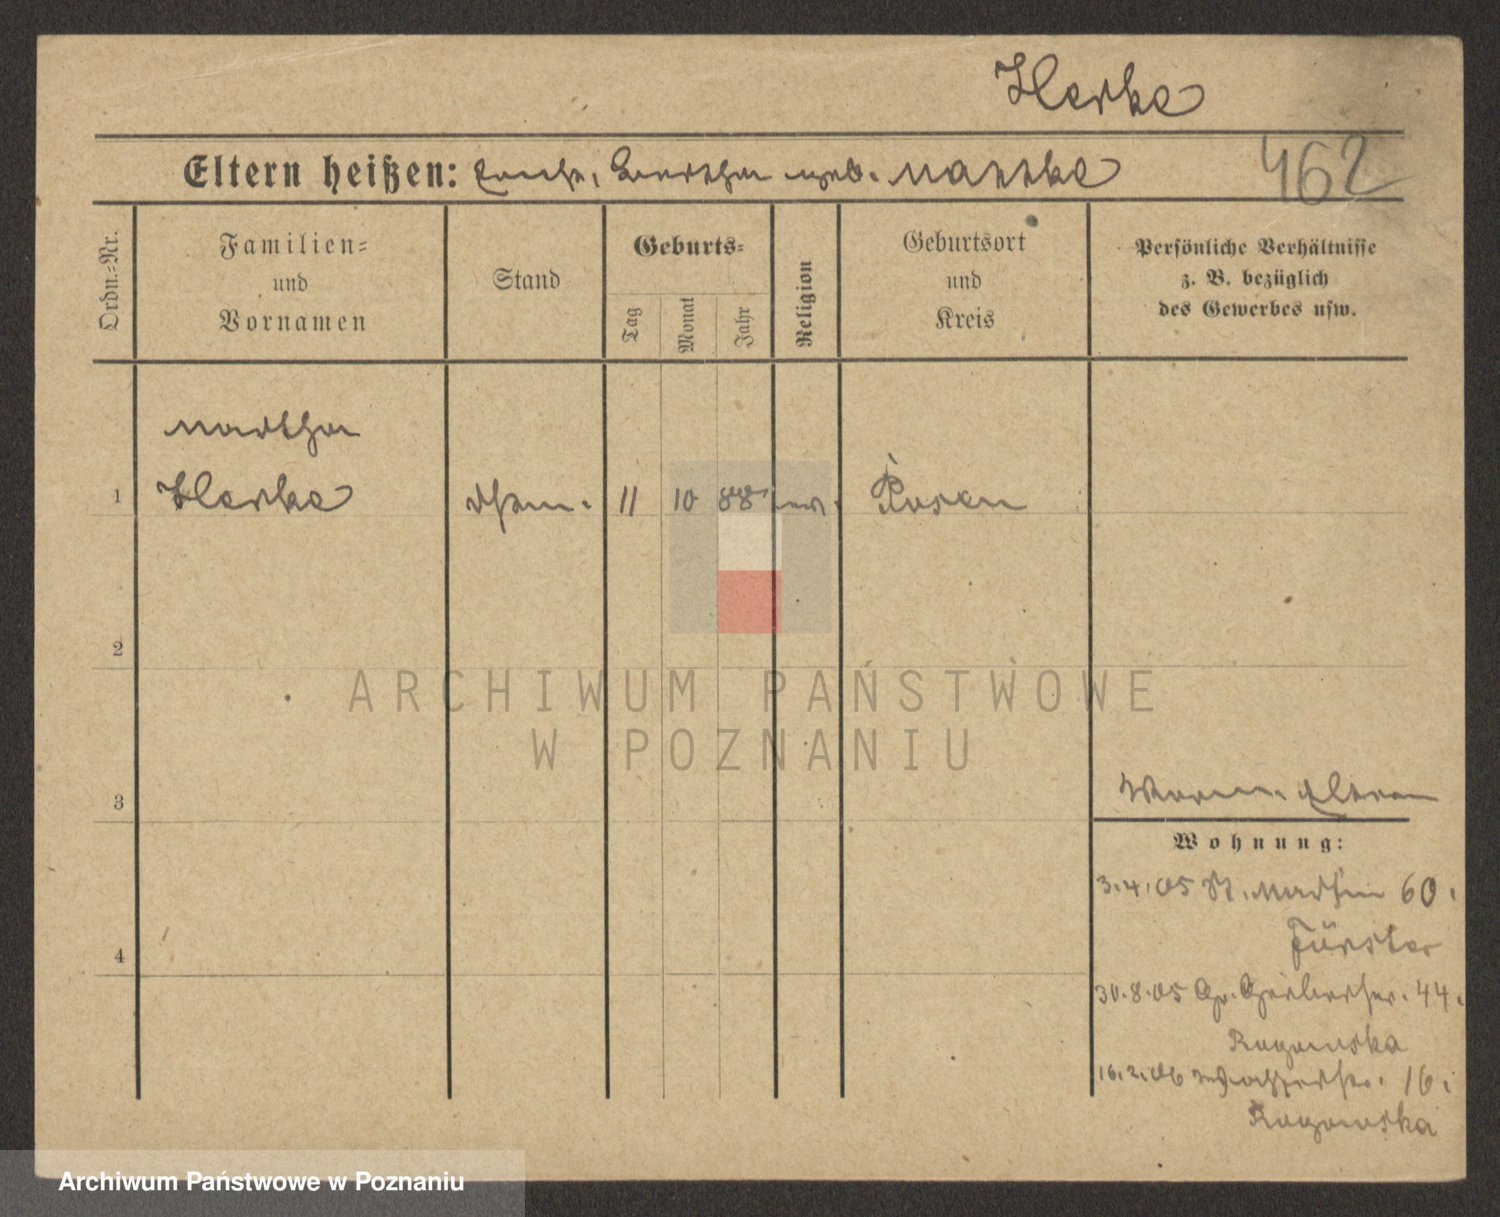 Herke
Eltern heißen: geb. Matzke
462
Ordn.=Nr.
Familien=
und
Vornamen
Stand
Geburts=
Tag
Monat
Jahr
Religion
Geburtsort
und
Kreis
Persönliche Verhältnisse
z. B. bezüglich
des Gewerbes usw.
Martha
1 Herke 11 10 88 ev. Posen
2
ARCHIWUM PAŃSTWOWE
W POZNANIU
3
Eltern
Wohnung:
3.4.05 St. Martin 60.
Förster
4
30.8.05 Gr. Gerberstr. 44.
Rogowska
16.2.06 16.
Rogowska
Archiwum Państwowe w Poznaniu